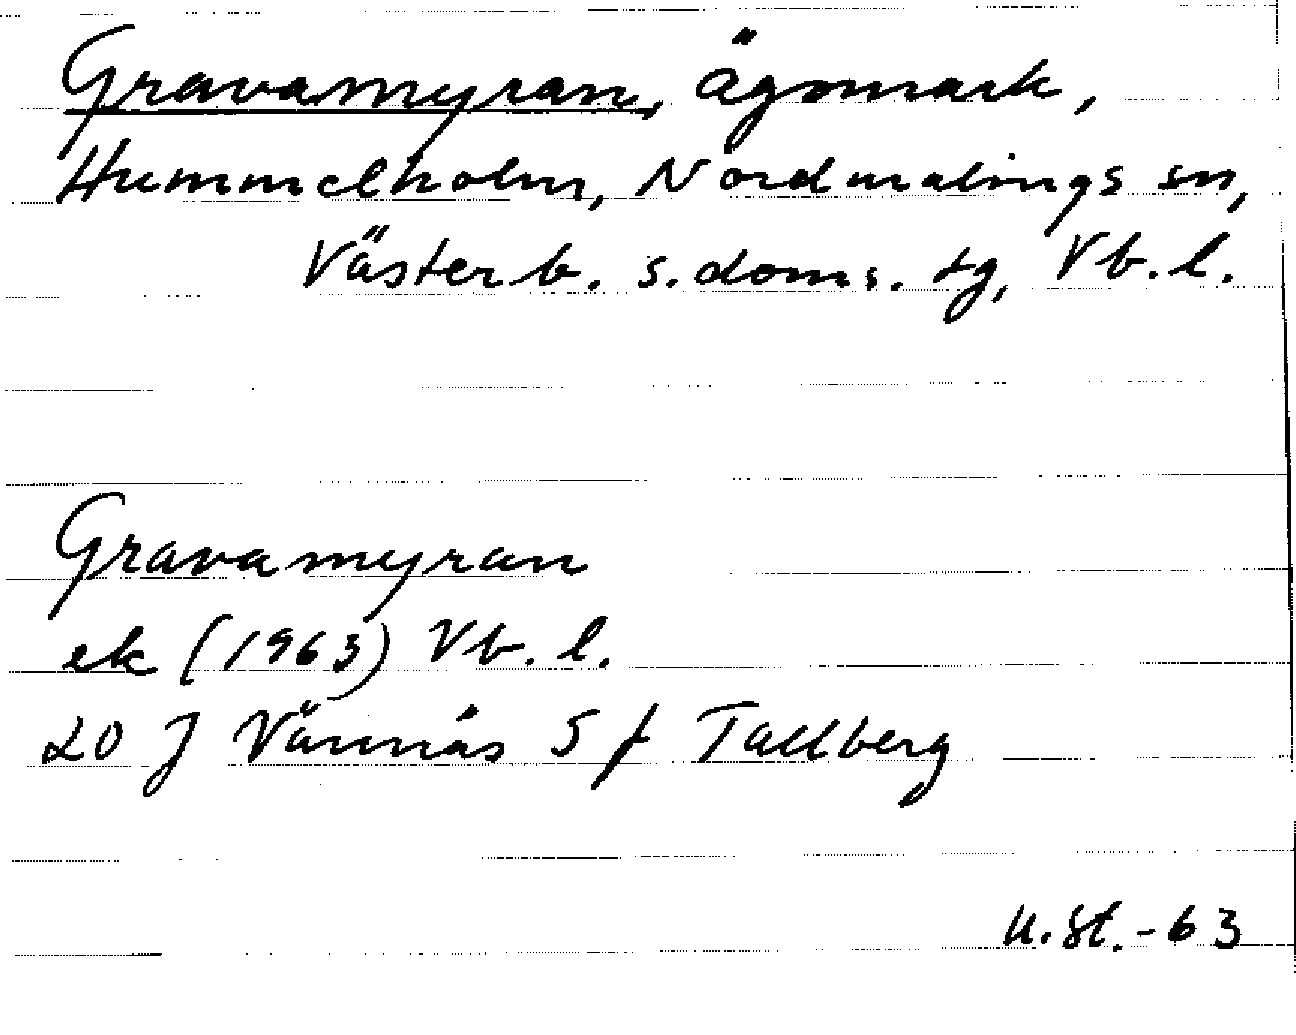 Gravamyran, ägomark,
Hummelholm, Nordmalings sn,
Västerb. s. doms. tg, Vb. l.
Gravamyran
ek (1963) Vb. l.
20 J Vännäs S f Tallberg
U. St. -63